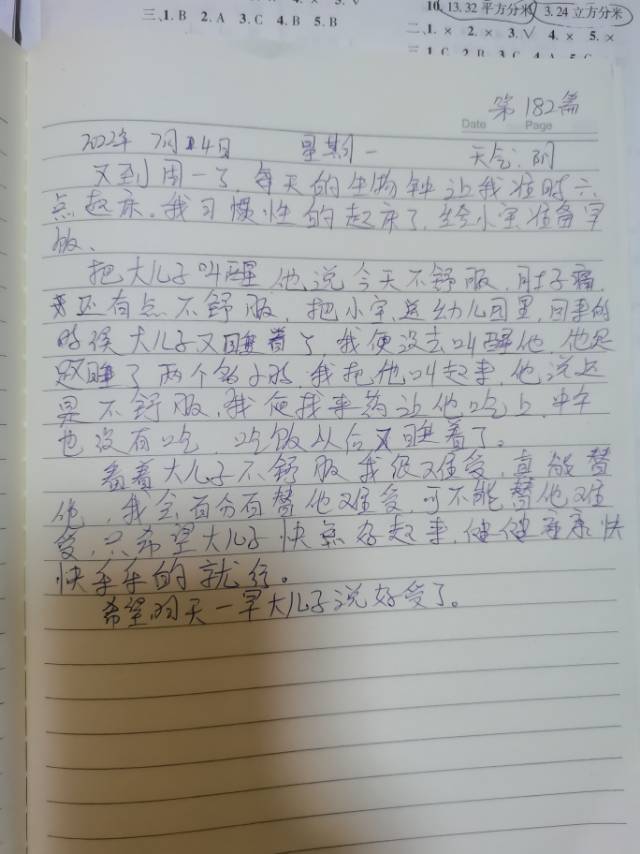 三、1. B 2. A 3. C 4. B 5. B
10. 13.32 平方分米 3.24 立方分米
二、1. × 2. × 3. √ 4. × 5. ×
第182篇
Date Page
2022年 7月4日 星期一 天气：阴
又到周一了，每天的生物钟让我准时六
点起床。我习惯性的起床了，给小宝准备早
饭、
把大儿子叫醒他说今天不舒服，肚子痛，
还有点不舒服，把小宝送幼儿园里，回来的
时候大儿子又睡着了，我便没去叫醒他，他足
足睡了两个多小时，我把他叫起来，他说还
是不舒服，我便找来药让他吃上，中午
也没有吃，吃饭以后又睡着了。
看着大儿子不舒服我很难受，真能替
他，我会百分百替他难受，可不能替他难
受，只希望大儿子快点好起来，健健康康快
快乐乐的就行。
希望明天一早大儿子说好受了。